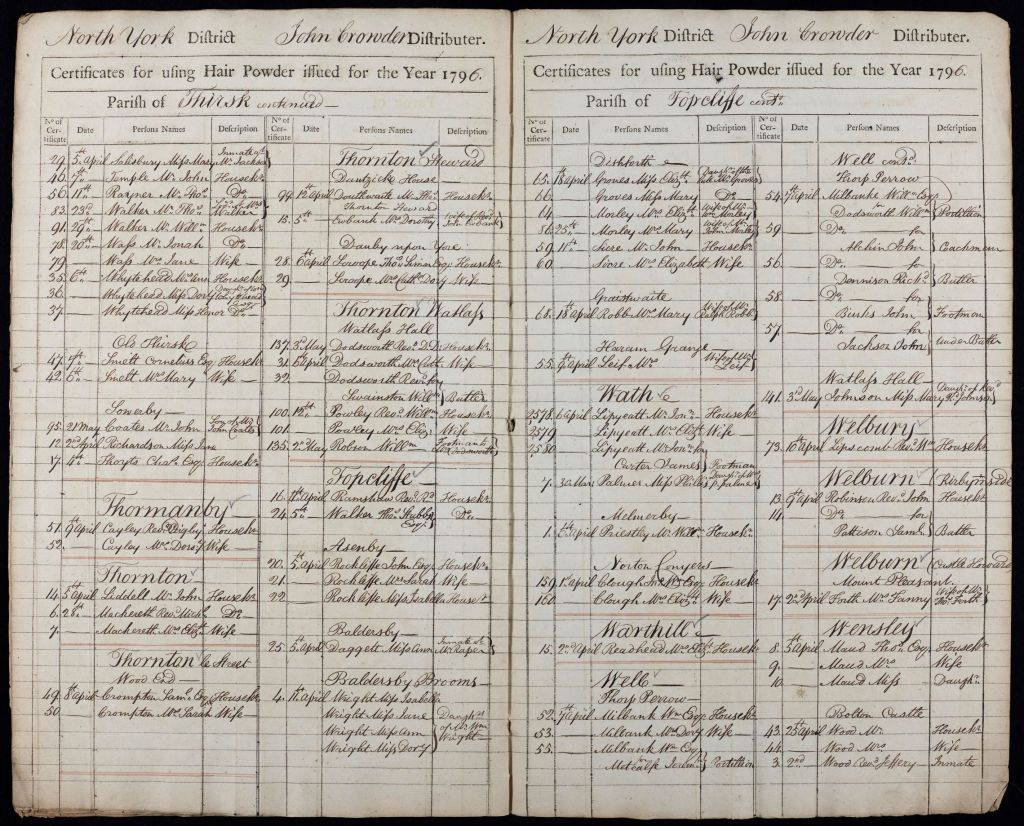 North York District John Crowder Distributer.
Certificates for using Hair Powder issued for the Year 1796.
Parish of Thirsk continued
No. of Certificate Date Persons Names Description
29. 5th April Salisbury Miss Mary Inmate at Mr. Jackson
46. 7th — Temple Mr. John Househr.
56. 11th — Rayner Mr. Thos. Do.
83. 23rd — Walker Mr. Thos. Walker
91. 29th — Walker Mr. Willm. Househr.
78. 20th — Wass Mr. Jonah Do.
79 — Wass Mrs. Jane Wife
35. 6th — Whytehead Mrs. Ann Househr.
36. — Whytehead Miss Dory
37. — Whytehead Miss Honor Do.
Old Thirsk
47. 7th — Smett Cornelius Esq. Househr.
42. 6th — Smett Mrs. Mary Wife
Sowerby
95. 21 May Coates Mr. John Son of Mr. John Coates
12. 2nd April Richardson Miss Jane
17. 4th — Skoyts Chas. Esq. Househr.
Thormanby
51. 9 April Cayley Revd. Digby Househr.
52. — Cayley Mrs. Doroy. Wife
Thornton
14. 5 April Liddell Mr. John Househr.
6. 28th — Machereth Revd. Mich. Do.
7. — Machereth Mrs. Elizth. Wife
Thornton le Street
Wood End
49. 8th April Crompton Saml. Esq. Househr.
50. — Crompton Mrs. Sarah Wife
No. of Certificate Date Persons Names Description
Thornton Steward
Dantzick House
99. 12th April Douthwaite Mr. Thos. Househr.
Thornton Steward
18. 5th — Ewbank Mrs. Dorothy Wife of Revd. John Ewbank
Danby upon Yore
28. 6 April Scroope Thos. Simon Esq. Househr.
29. — Scroope Mrs. Cath. Dory Wife
Thornton Watlass
Watlass Hall
137. 3rd May Dodsworth Revd. D.D. Househr.
31. 6 April Dodsworth Mrs. Cath. Wife
32. — Dodsworth Revd. for
Swainston Willm. Butler
100. 12th — Powley Revd. Willm. Househr.
101. — Powley Mrs. Eliz. Wife
135. 2nd May Robson Willm. Footman to Dr. Dodsworth
Topcliffe
16. 4th April Ramshaw Revd. Rd. Househr.
24. 5th — Walker Thos. Stubbs Esq. Do.
Asenby
20. 5 April Rockliffe John Esq. Househr.
21. — Rockliffe Mrs. Sarah Wife
22 — Rockliffe Miss Isabella
Baldersby
25. 5 April Daggett Miss Ann Inmate at Mr. Raper
Baldersby Brooms
4. 1st April Wright Miss Isabella
Wright Miss Jane
Wright Miss Ann
Wright Miss Dory
Daughrs. of Mr. Wm. Wright
North York District John Crowder Distributer.
Certificates for using Hair Powder issued for the Year 1796.
Parish of Topcliffe contd.
No. of Certificate Date Persons Names Description
Dishforth
65. 18 April Groves Miss Elizth. Daughr. of the late Mr. Groves
66. — Groves Miss Mary Do.
64. — Morley Mrs. Elizth. Wife of Mr. Wm. Morley
86. 25th — Morley Mrs. Mary Wife of Mr. John Morley
59. 11th — Sivre Mr. John Househr.
60. — Sivre Mrs. Elizabeth Wife
Graistwaite
68. 18 April Robb Mrs. Mary Wife of Mr. Ralph Robb
Haram Grange
55. 9 April Leif Mrs. Wife of Mr. Leif
Wath
2578. 6 April Lipyeatt Mr. Jonn. Househr.
2579 — Lipyeatt Mrs. Elizth. Wife
2580 — Lipyeatt Mr. Jonn. for
Carter James Footman
7. 3d May Palmer Miss Philis Daughr. of Mr. P. Palmer
Melmerby
1. April Priestley Mr. Willm. Househr.
Norton Conyers
159. 1st April Clough Esq. Househr.
160. — Clough Mrs. Elizth. Wife
Warthill
15. 2nd April Readhead Mrs. Elizth. Househr.
Well
Thorp Perrow
52. 7 April Milbank Wm. Esq. Househr.
53. — Milbank Mrs. Dory Wife
55. — Milbank Wm. Esq.
Metcalfe Jerh. Postillion
No. of Certificate Date Persons Names Description
Well contd.
Thorp Perrow
54. 7 April Milbanke Willm. Esq.
Dodsworth Willm. Postillion
59 — Do. for
Alchin John Coachman
56. — Do. for
Dennison Richd. Butler
58. — Do. for
Binks John Footman
57 — Do. for
Jackson John Under Butler
Watlass Hall
141. 3rd May Johnson Miss Mary Daughr. of Revd. R. Johnson
Welbury
73. 10 April Lipscomb Revd. Wm. Househr.
Welburn (Kirbymside)
13. 9 April Robinson Revd. John Househr.
14. — Do. for
Patteson Saml. Butler
Welburn (Castle Howard)
Mount Pleasant
17. 22nd April Forth Mrs. Fanny Wife of Mr. Thos. Forth
Wensley
8. 5 April Maud Thos. Esq. Househr.
9. — Maud Mrs. Wife
10. — Maud Miss Daughr.
Bolton Castle
43. 25 April Wood Mr. Househr.
44. — Wood Mrs. Wife
3. 2nd — Wood Revd. Jeffery Inmate